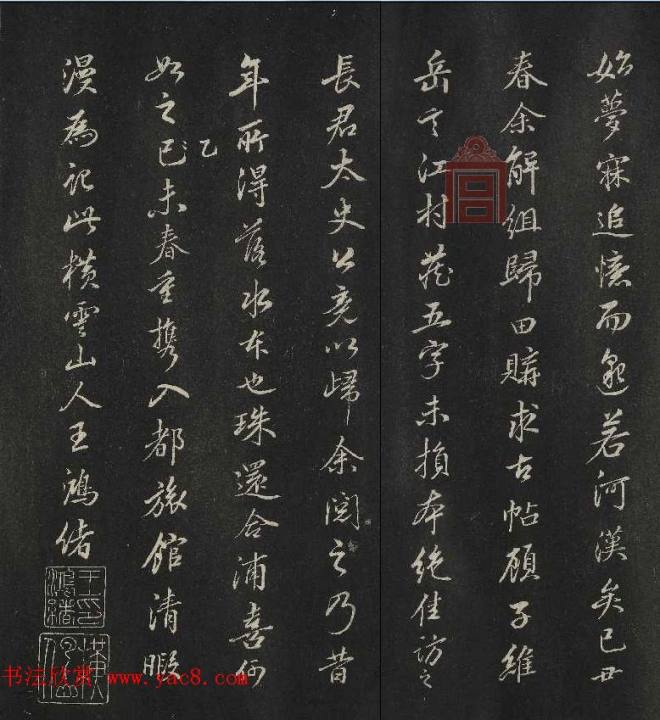 始夢寐追憶而邈若河漢矣己丑
春余解組歸田購求古帖顧子維
岳言江村藏五字未損本絕佳訪之
長君太史公竟以歸余閱之乃昔
年所得落水本也珠還合浦喜何
如之已未春重携入都旅館清暇
乙
漫為記此橫雲山人王鴻緒
王印鴻緒
书法欣赏 www.yac8.com